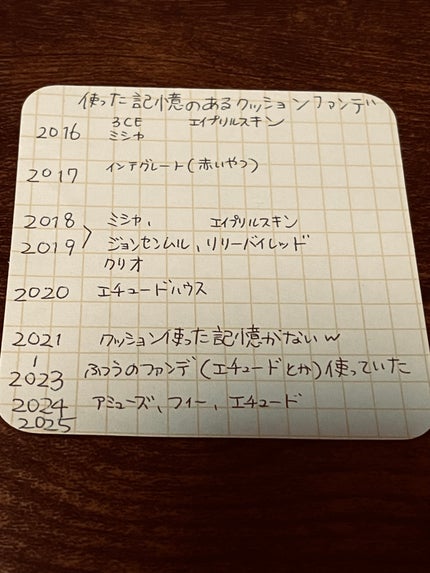 使った記憶のあるクッションファンデ
3CE エイプリルスキン
2016 ミシャ
2017 インテグレート(赤いやつ)
2018 ミシャ、 エイプリルスキン
2019 > ジョンセンムル、リリーバイレッド
クリオ
2020 エチュードハウス
2021 クッション使った記憶がないw
|
2023 ふつうのファンデ(エチュードとか)使っていた
2024 アミューズ、フィー、エチュード
2025